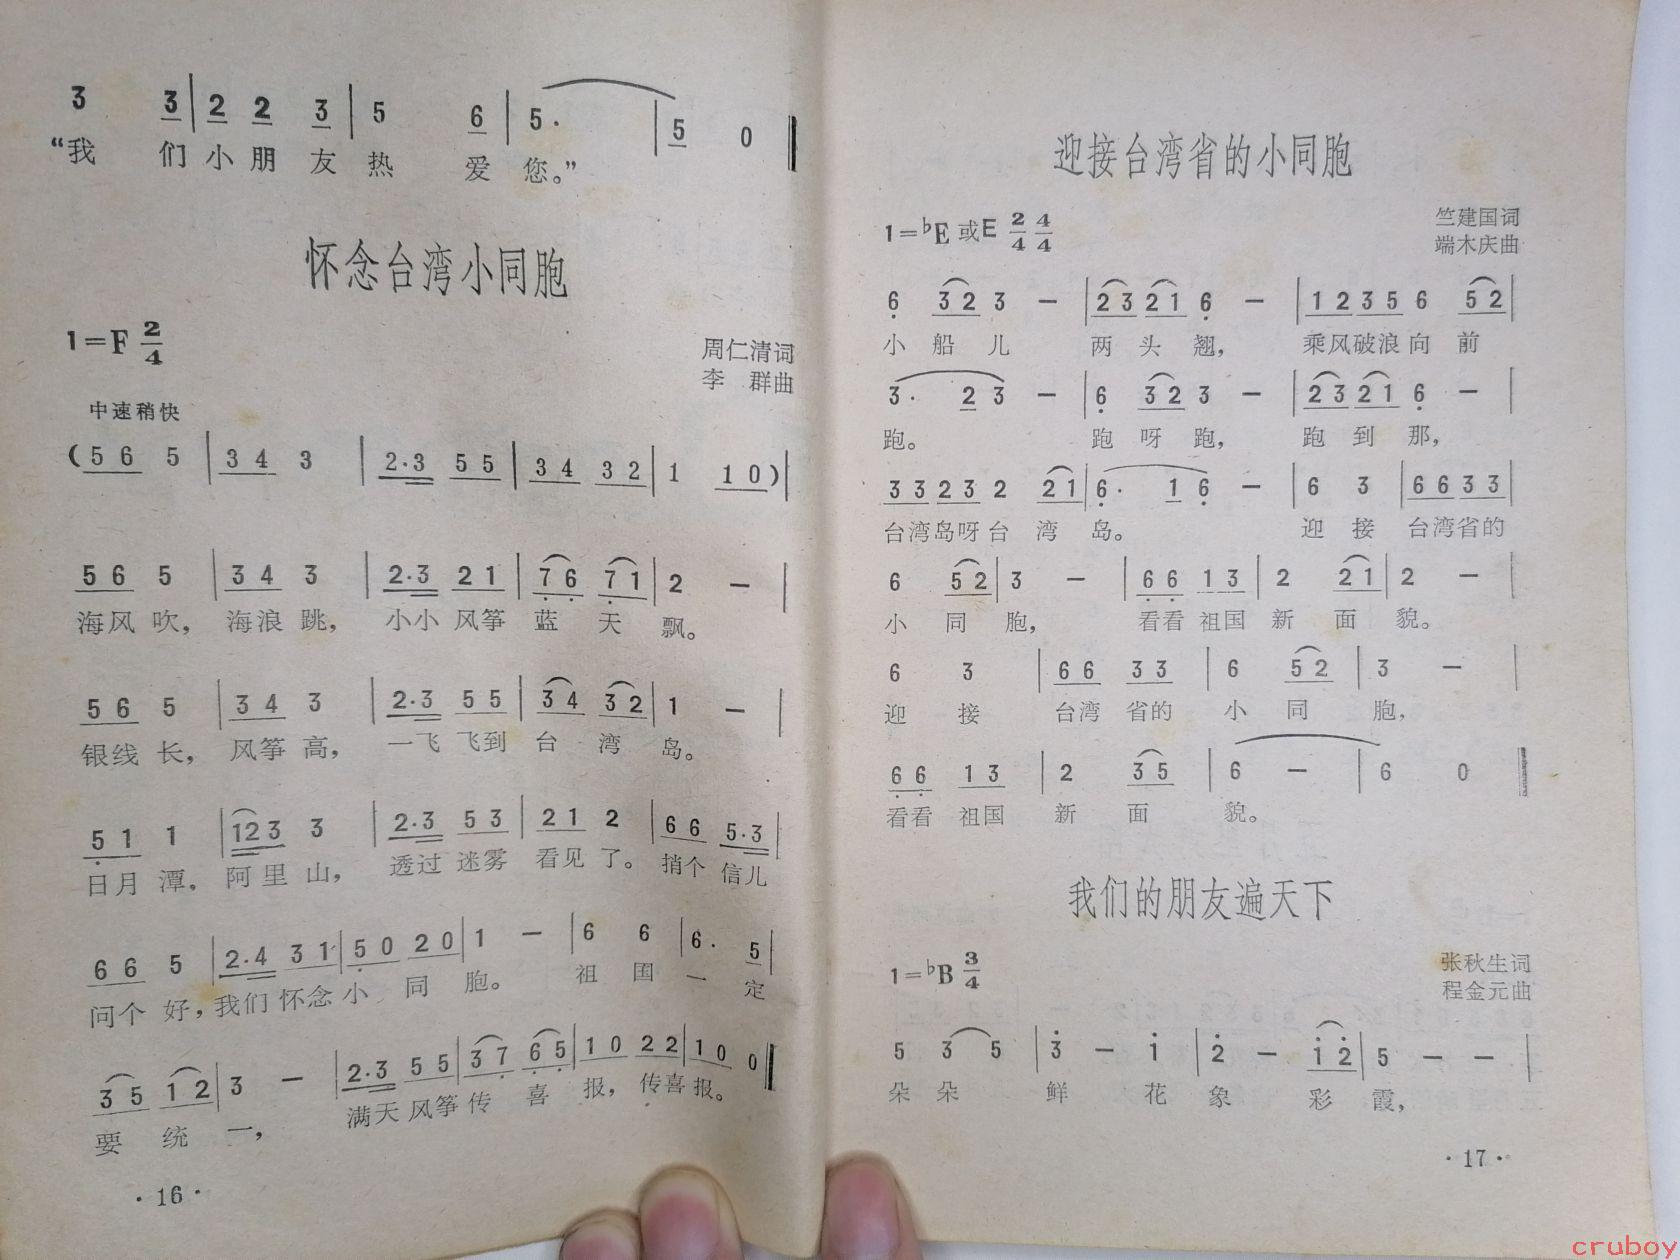 3 3 | 2 2 3 | 5 6 | 5· | 5 0
“我 们 小 朋 友 热 爱 您。”
怀念台湾小同胞
1=F 2/4
周仁清词
李 群曲
中速稍快
(5 6 5 | 3 4 3 | 2·3 5 5 | 3 4 3 2 | 1 1 0)|
5 6 5 | 3 4 3 | 2·3 2 1 | 7 6 7 1 | 2 — |
海风 吹, 海浪 跳, 小小 风筝 蓝 天 飘。
5 6 5 | 3 4 3 | 2·3 5 5 | 3 4 3 2 | 1 — |
银线 长, 风筝 高, 一飞 飞到 台 湾 岛。
5 1 1 | 1 2 3 3 | 2·3 5 3 | 2 1 2 | 6 6 5·3 |
日月 潭, 阿里 山, 透过 迷雾 看见 了。 捎个 信儿
6 6 5 | 2·4 3 1 | 5 0 2 0 | 1 — | 6 6 | 6· 5 |
问个 好, 我们 怀念 小 同 胞。 祖 国 一 定
3 5 1 2 | 3 — | 2·3 5 5 | 3 7 6 5 | 1 0 2 2 | 1 0 0
要 统 一, 满天 风筝 传 喜 报, 传喜 报。
·16·
迎接台湾省的小同胞
1=♭E 或E 2/4 4/4
竺建国词
端木庆曲
6 3 2 3 — | 2 3 2 1 6 — | 1 2 3 5 6 5 2 |
小 船 儿 两 头 翘, 乘风破浪 向 前
3· 2 3 — | 6 3 2 3 — | 2 3 2 1 6 — |
跑。 跑 呀 跑, 跑 到 那,
3 3 2 3 2 2 1 | 6· 1 6 — | 6 3 | 6 6 3 3 |
台湾岛呀 台 湾 岛。 迎 接 台湾省的
6 5 2 | 3 — | 6 6 1 3 | 2 2 1 | 2 — |
小 同 胞, 看看 祖国 新 面 貌。
6 3 | 6 6 3 3 | 6 5 2 | 3 — |
迎 接 台湾 省的 小 同 胞,
6 6 1 3 | 2 3 5 | 6 — | 6 0
看看 祖国 新 面 貌。
我们的朋友遍天下
1=♭B 3/4
张秋生词
程金元曲
5 3 5 | 3 — 1 | 2 — 1 2 | 5 — — |
朵 朵 鲜 花 象 彩 霞,
·17·
cruboy